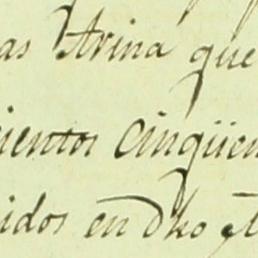 as Arina que
ientos cinqüen
idos en dho